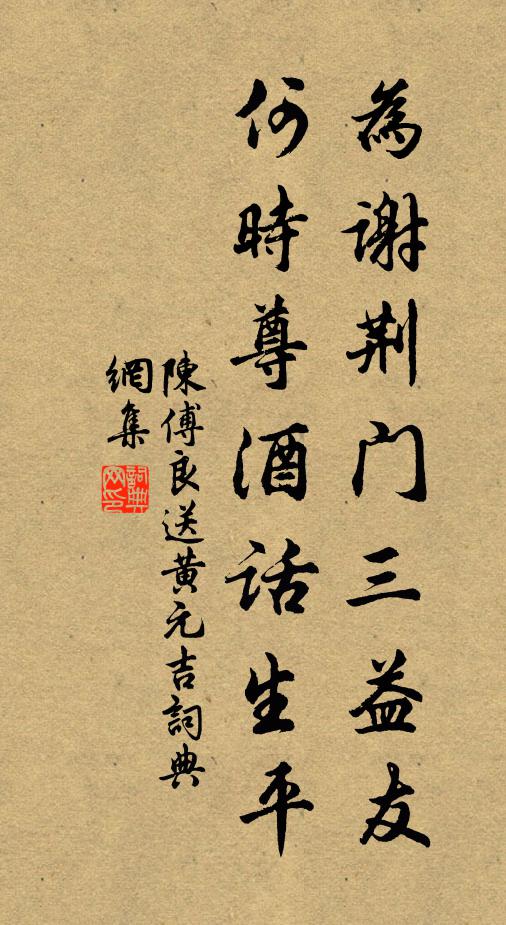 為謝荆门三益友
何時尊酒話生平
陳傅良送黄元吉詞典
網集
詞典网印